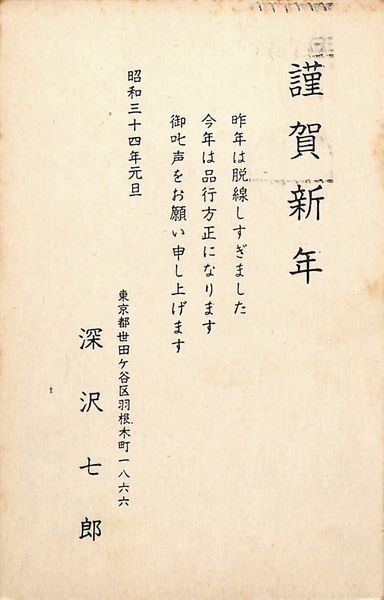 謹賀新年
昨年は脱線しすぎました
今年は品行方正になります
御叱声をお願い申し上げます
昭和三十四年元旦
東京都世田ケ谷区羽根木町一八六六
深沢七郎